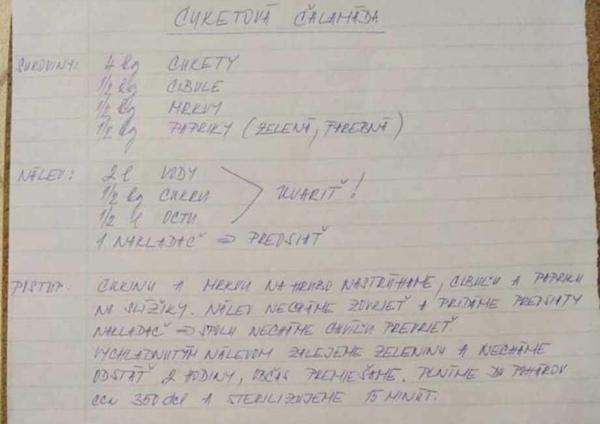 CUKETOVÁ ČALAMÁDA
SUROVINY: 4 kg CUKETY
1/2 kg CIBULE
1/2 kg MRKVY
1/2 kg PAPRIKY (ZELENÁ, FAREBNÁ)
NÁLEV: 2 l VODY
1/2 kg CUKRU UVARIŤ!
1/2 l OCTU
1 NAKLADAČ → PREOSIAŤ
POSTUP: CUKINU A MRKVU NA HRUBO NASTRÚHAME, CIBUĽU A PAPRIKU
NA SLÍŽIKY. NÁLEV NECHÁME ZOVRIEŤ A PRIDÁME PREOSIATY
NAKLADAČ → SPOLU NECHÁME CHVÍĽU PREVRIEŤ
VYCHLADNUTÝM NÁLEVOM ZALEJEME ZELENINU A NECHÁME
ODSTÁŤ 2 HODINY, OBČAS PREMIEŠAME. PLNÍME DO POHÁROV
CCA 350 dcl A STERILIZUJEME 15 MINÚT.